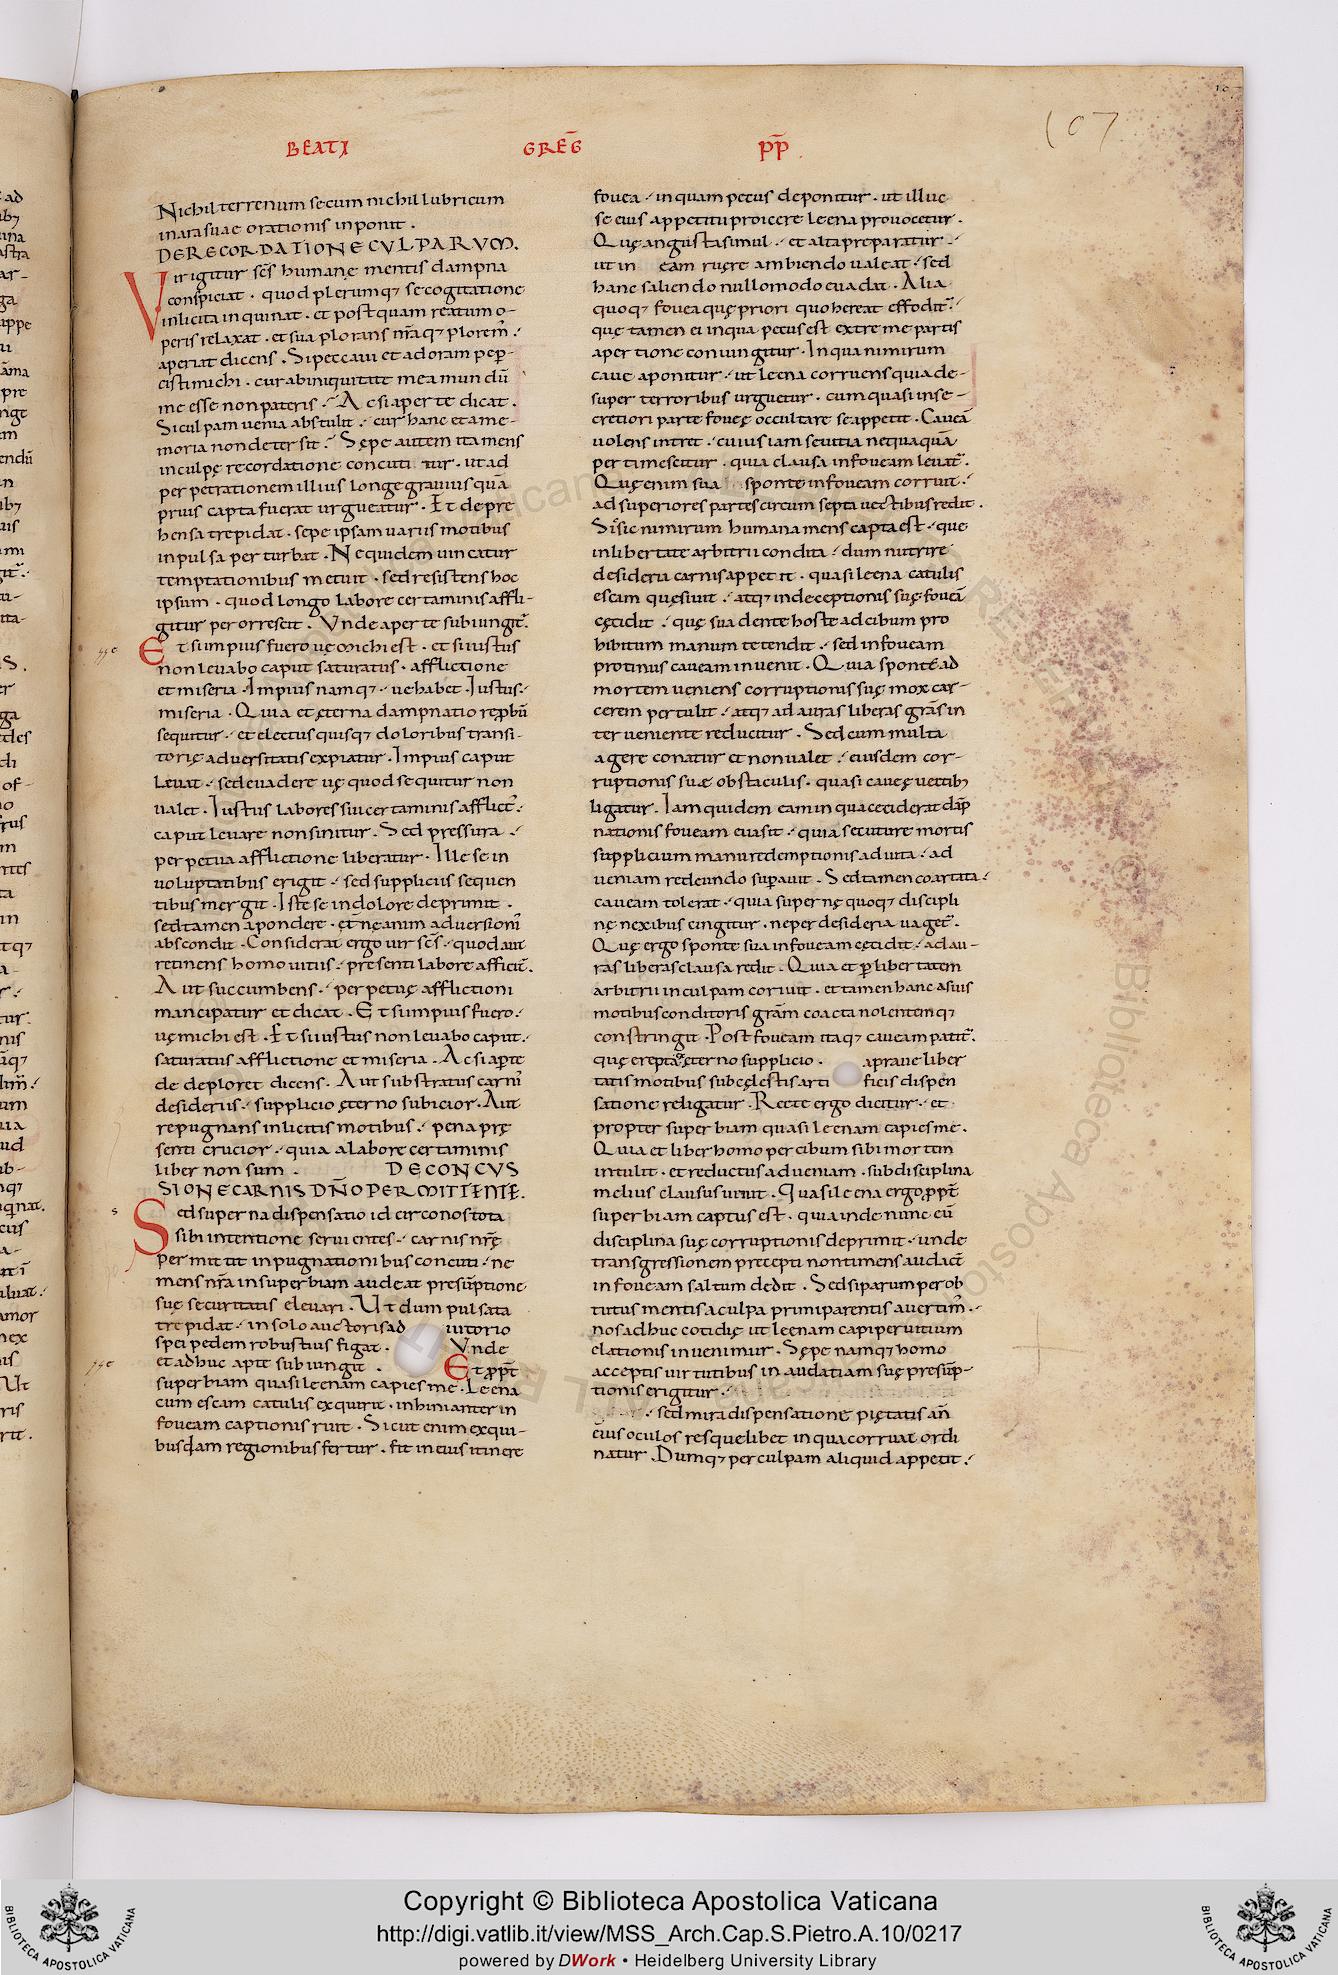 BEATI GREG̅ PP̅
107
Nichil terrenum secum nichil lubricum
in ara suae orationis inponit .
DE RECORDATIONE CULPARUM.
Vir igitur sc̅s humane mentis dampna
conspiciat . quod plerumq; se cogitatione
inlicita inquinat . et postquam reatum o-
peris relaxat . et sua plorans n̅raq; plorem̅ .
aperiat dicens . Si peccavi et ad oram pep̅-
cisti michi . cur ab iniquitate mea mundu̅
me esse non pateris . Ac si aperte dicat .
Si culpam venia abstulit . cur hanc et a me-
moria non detersit . Sępe autem ita mens
in culpę recordatione concuti tur . ut ad
perpetrationem illius longe gravius qua̅
prius capta fuerat urgueatur . Et depre
hensa trepidat . sepe ipsam variis motibus
inpulsa perturbat . Ne quidem vincatur
temptationibus metuit . sed resistens hoc
ipsum . quod longo labore certaminis affli-
gitur perorrescit . Unde aperte subiungit .
Et si impius fuero vę michi est . et si iustus
non levabo caput saturatus . afflictione
et miseria . Impius namq; . ve habet . Iustus .
miseria . Quia et ęterna dampnatio reprobu̅
sequitur . et electus quisq; doloribus transi-
torię adversitatis expiatur . Impius caput
levat . sed evadere vę quod sequitur non
valet . Iustus labores sui certaminis afflict̅ .
caput levare non sinitur . Sed pressura .
perpetua afflictione liberatur . Ille se in
voluptatibus erigit . sed suppliciis sequen
tibus mergit . Iste se in dolore deprimit .
sed tamen a pondere . et̅nę animadversioni̅
abscondit . Considerat ergo vir sc̅s . quod aut
retinens homo vitiis . presenti labore afficit̅ .
Aut succumbens . perpetuę afflictioni
mancipatur et dicat . Et si impius fuero .
vę michi est . Et si iustus non levabo caput .
saturatus afflictione et miseria . Ac si ap̅te
de deploret dicens . Aut substratus carni̅
desideriis . supplicio ęterno subicior . Aut
repugnans inlicitis motibus . pena prę
senti crucior . quia a labore certaminis
liber non sum . DE CONCUS
SIONE CARNIS DN̅O PERMITTENTE.
Sed superna dispensatio idcirco nos tota
sibi intentione servientes . carnis nr̅ę
permittit inpugnationibus concuti . ne
mens nr̅a in superbiam audeat presu̅ptione
suę securitatis elevari . Ut dum pulsata
trepidat . in solo auctoris ad iutorio
spei pedem robustius figat . Unde
et adhuc apte subiungit . Et ppt̅
superbiam quasi leenam capies me . Leena
cum escam catulis exquirit . inhianter in
foveam captionis ruit . Sicut enim ex qui-
busdam regionibus fertur . fit in eius itinere
fovea . in quam pecus deponitur . ut illuc
se eius appetitu proicere leena provocetur .
Quę angusta simul . et alta preparatur .
ut in eam ruere ambiendo valeat . sed
hanc saliendo nullomodo evadat . Alia
quoq; fovea quę priori quohereat effodit̅ .
quę tamen ei in qua pecus est extreme partis
apertione coniungitur . In qua nimirum
cavea ponitur . ut leena corruens quia de-
super terroribus urguetur . cum quasi inse-
cretiori parte foveę occultare se appetit . Cavea̅
volens intret . cuius iam sevitia nequaqua̅
pertimescitur . quia clausa in foveam levat̅ .
Quę enim sua sponte in foveam corruit .
ad superiores partes circumsepta vectibus redit .
Si̅ sic nimirum humana mens capta est . que
in libertate arbitrii condita . dum nutrire
desideria carnis appetit . quasi leena catulis
escam quęsivit . atq; in deceptionis suę fovea̅
cęcidit . quę suadente hoste ad cibum pro
hibitum manum tetendit . sed in foveam
protinus caveam invenit . Quia sponte ad
mortem veniens corruptionis suę mox car-
cerem pertulit . atq; ad auras liberas gra̅s in
terveniente reducitur . Sed cum multa
agere conatur et non valet . eiusdem cor-
ruptionis suę obstaculis . quasi caveę vectib;
ligatur . Iam quidem eam in qua ceciderat da̅p
nationis foveam evasit . quia secuture mortis
supplicium manu redemptionis ad vita . ad
veniam redeundo sup̅avit . Sed tamen coartata .
caveam tolerat . quia supernę quoq; discipli
nę nexibus cingitur . ne per desideria vaget̅ .
Quę ergo sponte sua in foveam cęcidit . ad au-
ras liberas clausa redit . Quia et p̅ libertatem
arbitrii in culpam coriuit . et tamen hanc a suis
motibus conditoris gra̅m coacta nolentem q;
constringit . Post foveam itaq; caveam patit̅ .
quę erepta ęterno supplicio . a prave liber
tatis motibus sub cęlestis arti ficis dispen
satione religatur . Recte ergo dicitur . et
propter superbiam quasi leenam capies me .
Quia et liber homo per cibum sibi mortem
intulit . et reductus ad veniam . sub disciplina
melius clausus vivit . Quasi leena ergo ppt̅
superbiam captus est . quia inde nunc eu̅
disciplina suę corruptionis deprimit . unde
transgressionem precepti non timens audace̅
in foveam saltum dedit . Sed si parumper ob
tutus mentis a culpa primi parentis avertim̅ .
nos adhuc cotidię ut leenam capi per vitium
elationis invenimur . Sępe namq; homo
acceptis virtutibus in audatiam suę presu̅p-
tionis erigitur .
. sed mira dispensatione pietatis an̅
e̅ius oculos res quelibet in qua corruat ordi
natur . Dumq; per culpam aliquid appetit .
Copyright © Biblioteca Apostolica Vaticana
http://digi.vatlib.it/view/MSS_Arch.Cap.S.Pietro.A.10/0217
powered by DWork • Heidelberg University Library
BIBLIOTECA APOSTOLICA VATICANA
BIBLIOTECA APOSTOLICA VATICANA